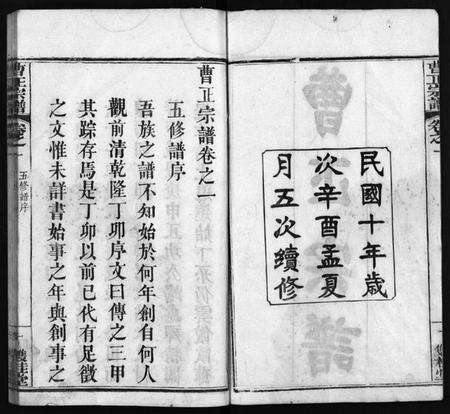 民國十年歲
次辛酉孟夏
月五次續修
曹正宗譜卷之一
五修譜序
吾族之譜不知始於何年創自何人
觀前清乾隆丁卯序文曰傳之三甲
其踪存焉是丁卯以前已代有足徵
之文惟未詳書始事之年與創事之
曹正宗譜
卷之一
五修譜序
一
雙桂堂
曹正宗譜
卷之一